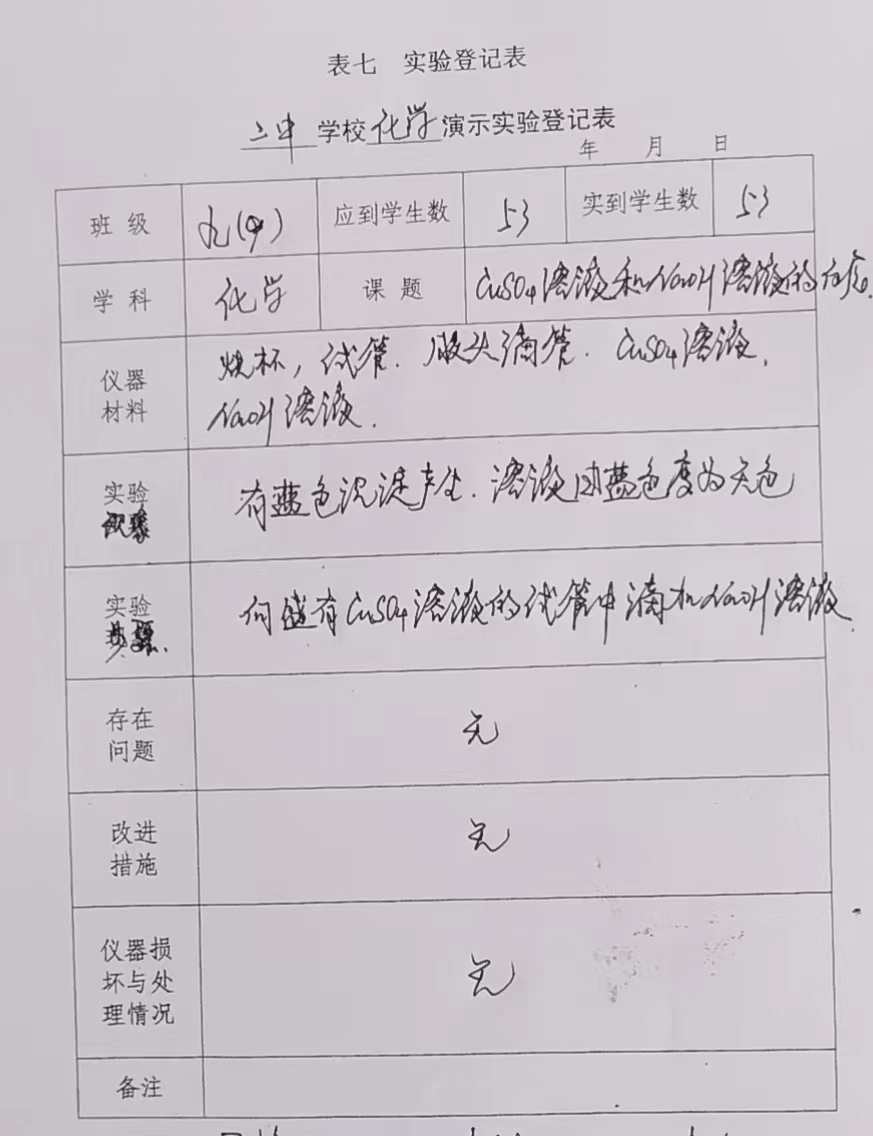 表七 实验登记表
二中学校化学演示实验登记表
年 月 日
班级 九(9) 应到学生数 53 实到学生数 53
学科 化学 课题 CuSO4溶液和NaOH溶液的反应.
仪器
材料
烧杯, 试管. 胶头滴管. CuSO4溶液.
NaOH溶液.
实验
现象
有蓝色沉淀产生. 溶液由蓝色变为无色
实验
步骤.
向盛有CuSO4溶液的试管中滴加NaOH溶液.
存在
问题
无
改进
措施
无
仪器损
坏与处
理情况
无
备注